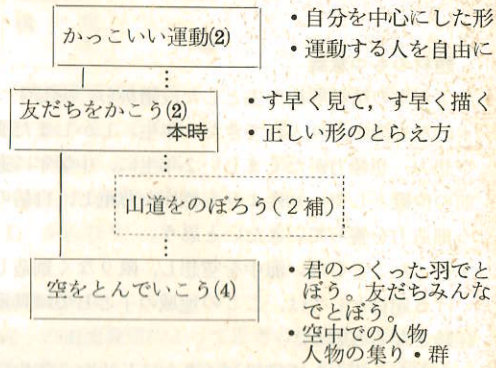 かっこいい運動(2)
・自分を中心にした形
・運動する人を自由に
友だちをかこう(2)
本時
・す早く見て，す早く描く
・正しい形のとらえ方
山道をのぼろう(2補)
空をとんでいこう(4)
・君のつくった羽でと
ぼう。友だちみんな
でとぼう。
・空中での人物
人物の集り・群